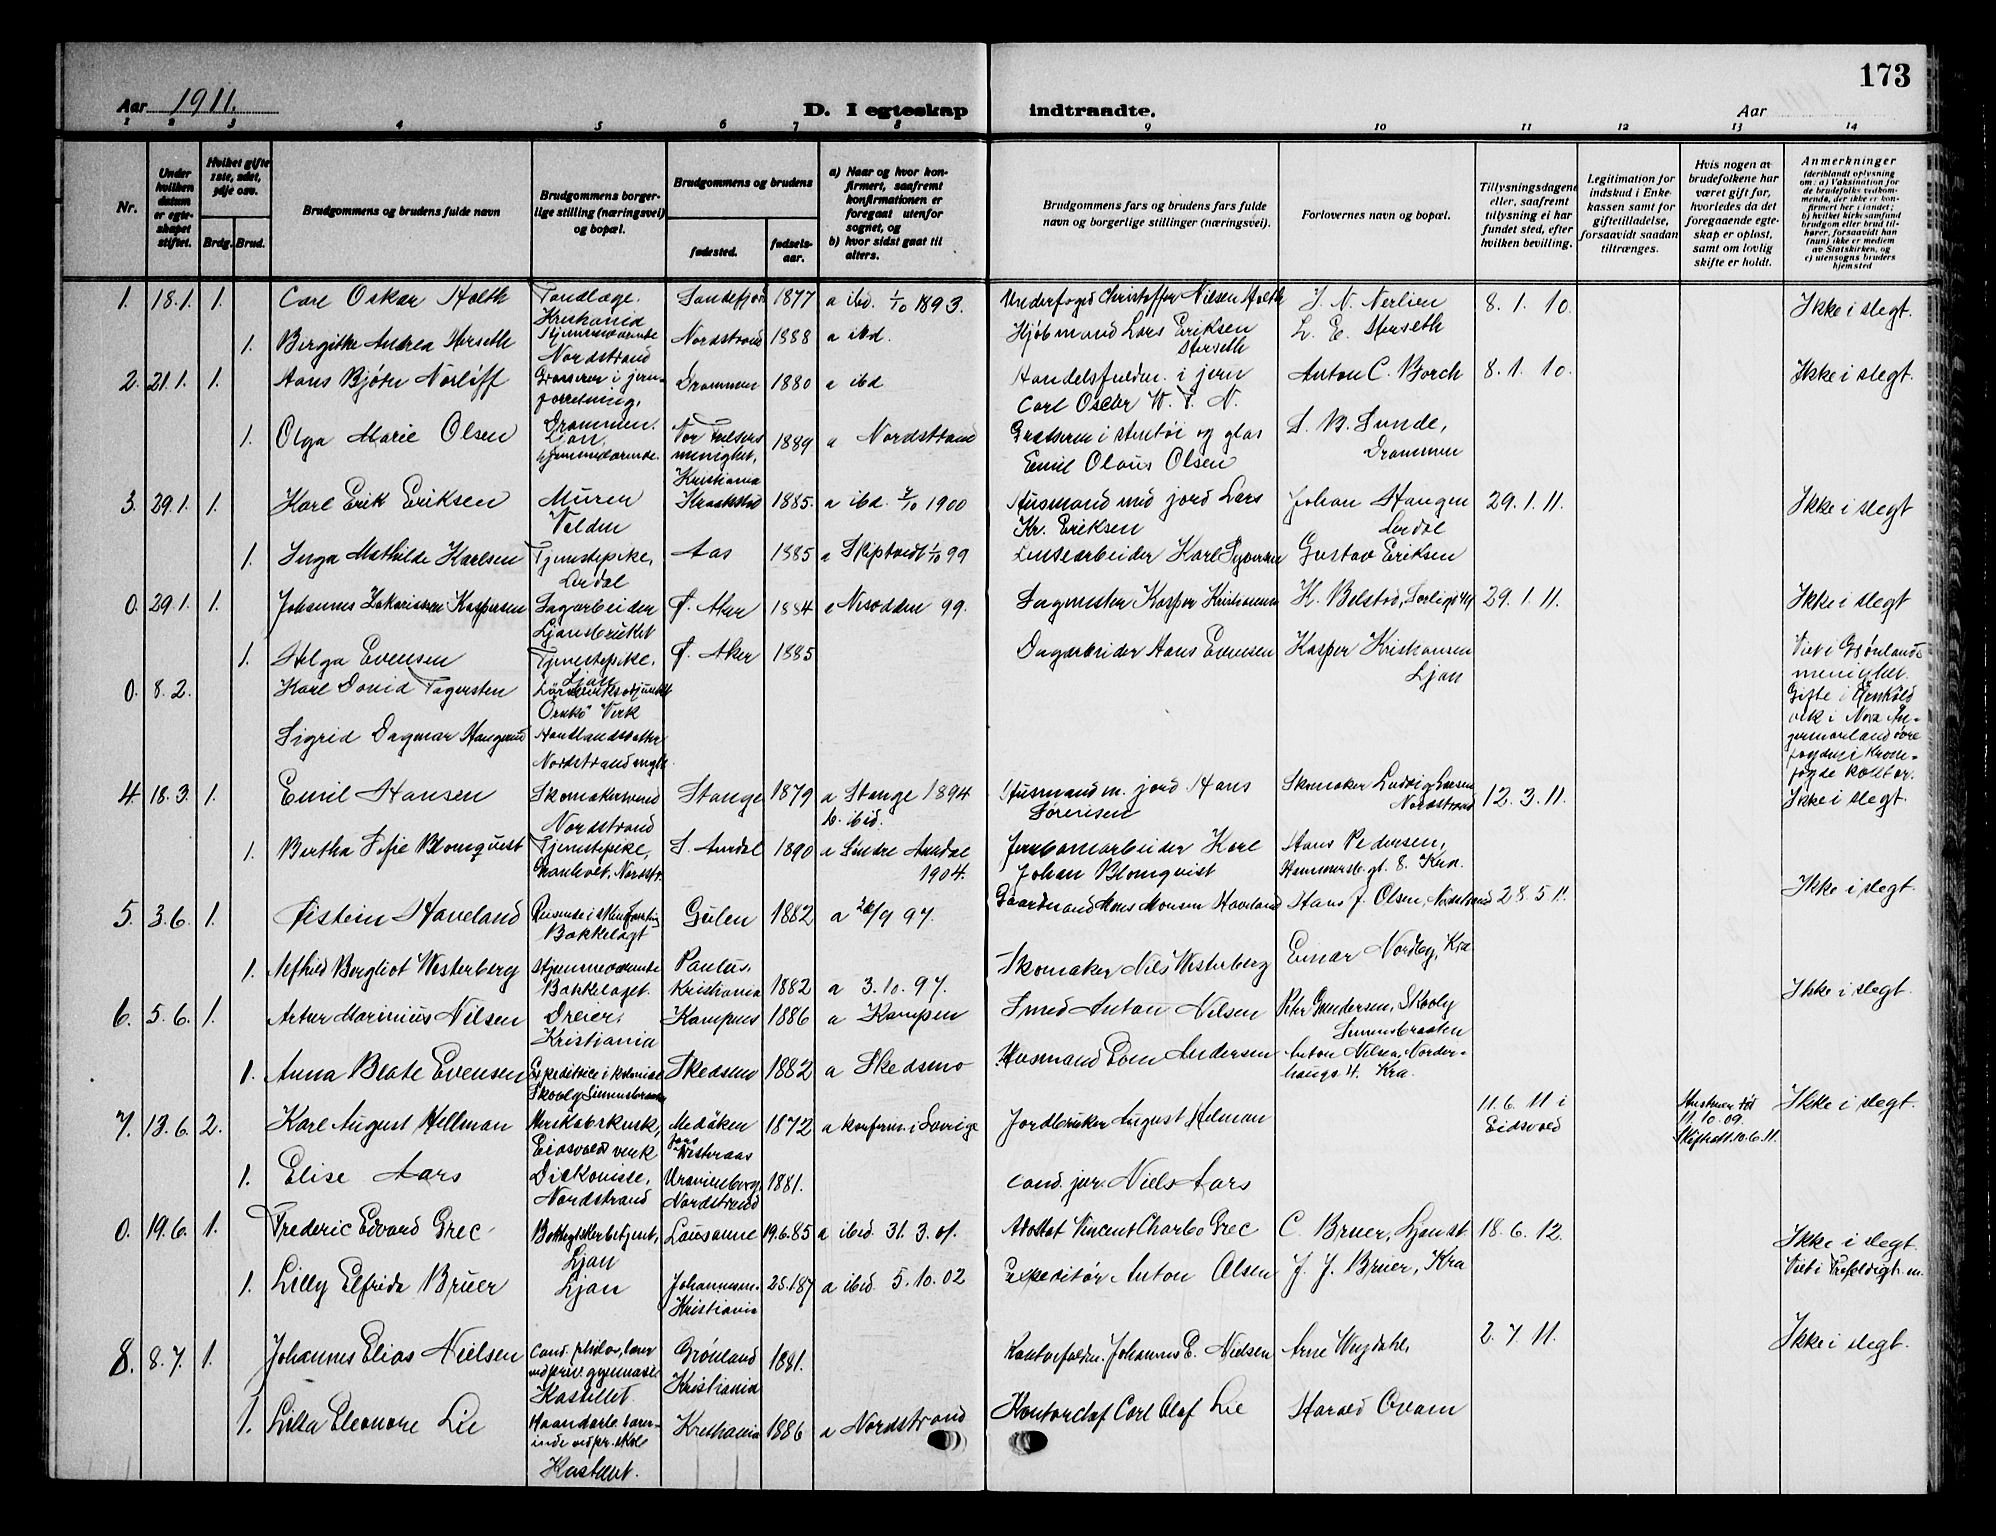 173
Aar 1911.
D. I egteskap indtraadte.
Aar
1 2 3 4 5 6 7 8 9 10 11 12 13 14
Nr.
Under hvilken datum er egteskapet stiftet.
Hvilket gifte 1ste, 2det, 3dje osv.
Brdg. Brud.
Brudgommens og brudens fulde navn
Brudgommens borgerlige stilling (næringsvei) og bopæl.
Brudgommens og brudens
fødested.
fødselsaar.
a) Naar og hvor konfirmert, saafremt konfirmationen er foregaat utenfor sognet, og
b) hvor sidst gaat til alters.
Brudgommens fars og brudens fars fulde navn og borgerlige stillinger (næringsvei).
Forlovernes navn og bopæl.
Tillysningsdagene eller, saafremt tillysning ei har fundet sted, efter hvilken bevilling.
Legitimation for indskud i Enkekassen samt for giftetilladelse, forsaavidt saadan tiltrænges.
Hvis nogen av brudefolkene har været gift før, hvorledes da det foregaaende egteskap er opløst, samt om lovlig skifte er holdt.
Anmerkninger (deriblandt oplysning om: a) Vaksination for de brudefolks vedkommende, der ikke er konfirmert her i landet; b) hvilket kirkesamfund brudgom eller brud tilhører, forsaavidt han (hun) ikke er medlem av Statskirken, og c) utensogns bruders hjemsted
1. 18.1. 1. Carl Oskar Holth Tandlæge. Kristiania Sandefjord 1877 a ibd. 1/10 1893. Underfoged Christoffer Nilsen Holth J. N. Nerlien 8. 1. 10. Ikke i slegt.
1. Birgitte Andrea Herseth Hjemmeværende Nordstrand Nordstrand 1888 a ibd. Lars Eriksen Herseth L. E. Herseth
2. 21.1. 1. Hans Bjørn Norløff Grosserer i jernforretning, Drammen. Drammen 1880 a ibd Handelsfuldm. i jern Carl Oscar W. T. N. Anton C. Borch 8. 1. 10. Ikke i slegt.
1. Olga Marie Olsen Ljan, hjemmeværende. Vor Frelsers menighet, Kristiania 1889 a Nordstrand Grosserer i stentøi og glas Emil Olaus Olsen S. B. Sunde, Drammen
3. 29.1. 1. Karl Erik Eriksen Murer Kraakstad 1885. a ibd. 1900 Husmand med jord Lars Kr. Eriksen Johan Haugen 29. 1. 11. Ikke i slegt
1. Inga Mathilde Karlsen Tjenestepike, Aas 1885 a Skiptvedt 1/10 99 Karl Syversen Gustav Eriksen
0. 29.1. 1. Johannes Zakariassen Kaspersen Sagarbeider Ljansbruket Ø. Aker 1884 a Nesodden 99. Sagmester Kasper Kristiansen 29. 1. 11. Ikke i slegt
1. Helga Evensen Tjenestepike. Ljan Ø. Aker 1885 Dagarbeider Hans Evensen Kasper Kristiansen Ljan Viet i Grønlands menighet.
0. 8.2. Karl David Tagersten Gifte i
Sigrid Dagmar Nordstrand mgh.
4. 18.3. 1. Emil Hansen Skomakersvend Nordstrand Stange 1879 a Stange 1894 b. ibid. Husmand m. jord Hans Sørensen Skomaker Ludvig Larsen Nordstrand 12. 3. 11. Ikke i slegt.
1. Bertha Sofie Blomquist Tjenestepike, Nordstr. S. Aurdal 1890 a Søndre Aurdal 1904. Jernbanearbeider Karl Johan Blomqvist Hans Pedersen, Hammersb.gt. 8. Kra.
5. 3.6. 1. Øistein Haveland Bækkelaget Gulen 1882 a 26/9 97. Gaardmand Mons Monsen Haveland Hans J. Olsen, Nordstrand 28. 5. 11. Ikke i slegt.
1. Alfhild Bergliot Westerberg Hjemmeværende Bækkelaget. Paulus, Kristiania 1882 a 3. 10. 97. Skomaker Nils Westerberg Einar Nordby, Kra
6. 5.6. 1. Artur Marinius Nilsen Dreier, Kristiania Kampens 1886 a Kampen Smed Anton Nilsen Peter Gundersen, Skovly Simensbraaten Ikke i slegt.
1. Anna Beate Evensen Expeditrice i kolonial Skovly Simensbraaten Skedsmo 1882 a Skedsmo Husmand Even Andersen Anton Nilsen, Norderhougs 4. Kra.
7. 13.6. 2. Karl August Hellman Eidsvolds verk Westeraas 1872 a konferm. i Sverige Jordbruker August Helman 11. 6. 11 i Eidsvold Hustruen død 11.10.09. Skifteatt. 10.6.11. Ikke i slegt.
1. Elise Aars Diakonisse, Nordstrand Uranienborg, Nordstrand 1881. cand. jur. Niels Aars
0. 19.6. 1. Frederic Edvard Grec Ljan Lausanne 19.6.85 a ibid. 31. 3. 01. Advokat Vincent Charles Grec C. Bruer, Ljan st. 18. 6. 12. Ikke i slegt.
1. Lilly Elfrida Bruer Ljan Johannesm. Kristiania 25.1 87 a ibid. 5. 10. 02 Expeditør Anton Olsen J. J. Bruer, Kra Viet i Trefoldigh. m.
8. 8.7. 1. Johannes Elias Nielsen cand. philos, lærer ved priv. gymnasie Kastellet Grønland Kristiania 1881. Kontorfuldm. Johannes E. Nielsen Arne Wegdahl, 2. 7. 11. Ikke i slegt.
1. Lilla Eleonore Lie Haandarb. lærerinde ved pr. skole Kastellet. Kristiania 1886 a Nordstrand Kontorchef Carl Olaf Lie Harald Ovam